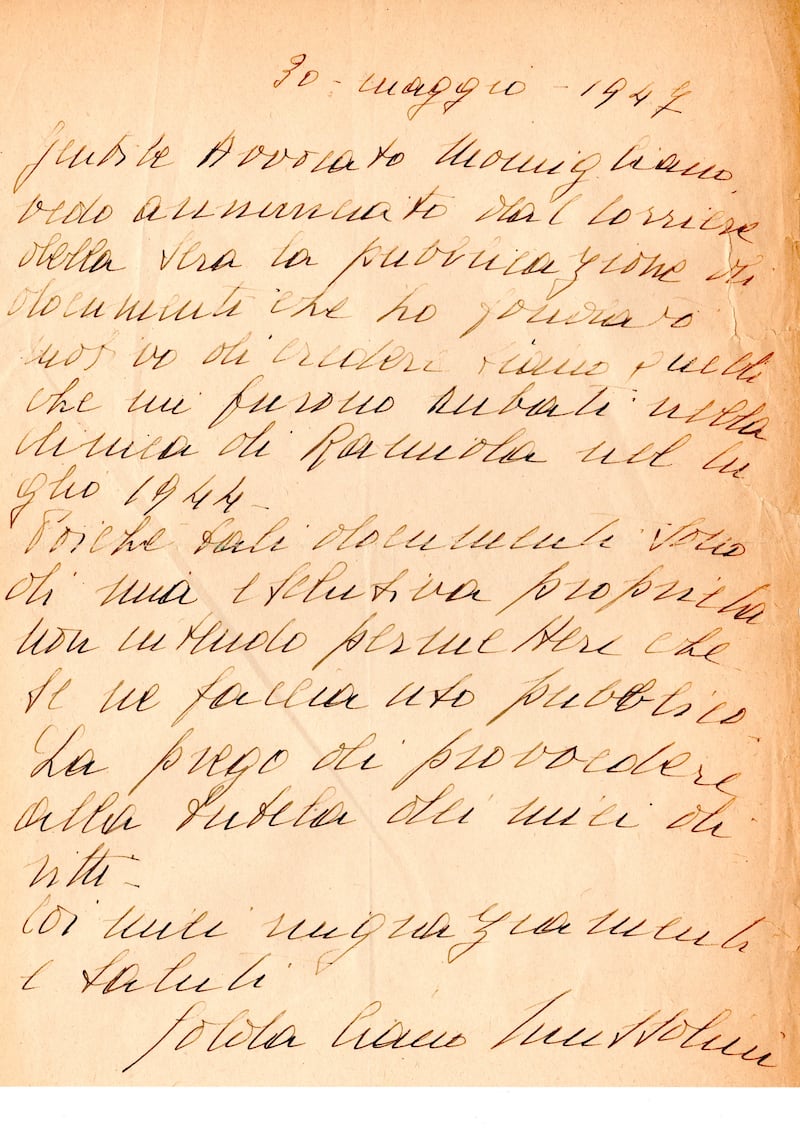 30 - maggio - 1947
Gentile Avvocato Momigliano,
vedo annunciato dal Corriere
della Sera la pubblicazione di
documenti che ho fondato
motivo di credere siano quelli
che mi furono rubati nella
clinica di Ramiola nel lu
glio 1944 -
Poichè tali documenti sono
di mia esclusiva proprietà
non intendo permettere che
se ne faccia uso pubblico.
La prego di provvedere
alla tutela dei miei di
ritti -
Coi miei ringraziamenti
e saluti
Edda Ciano Mussolini